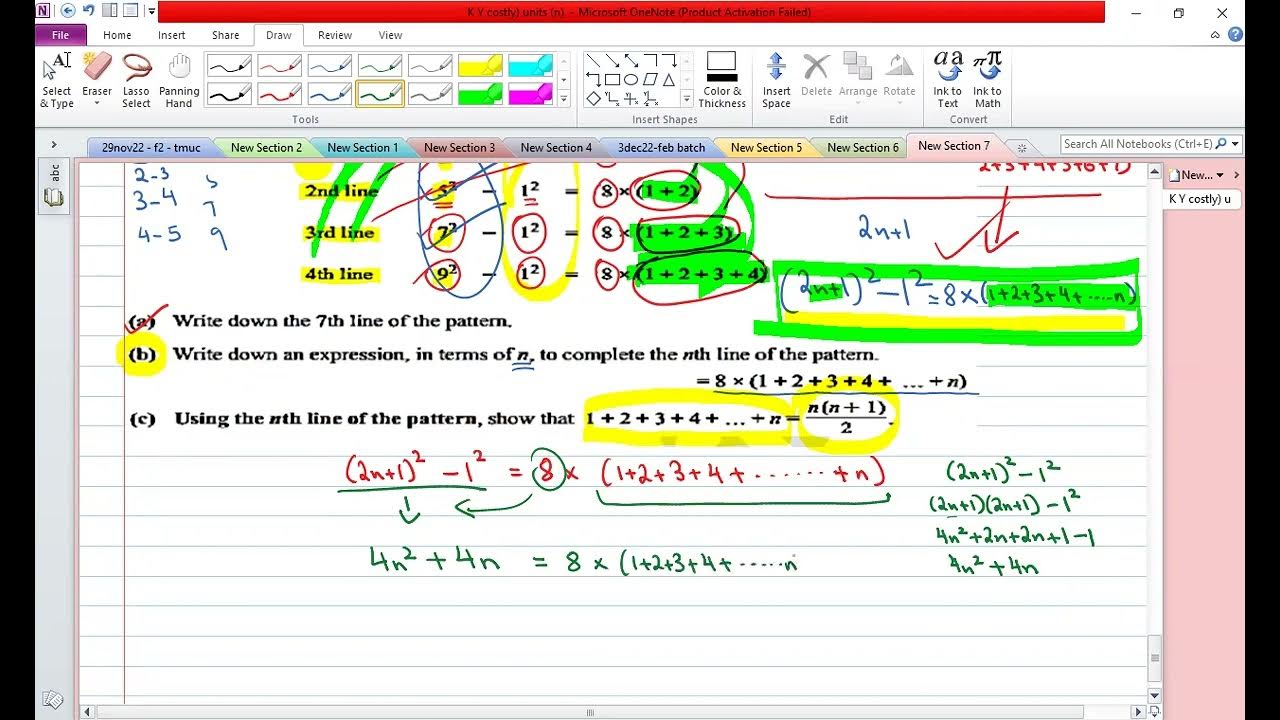 K Y costly) units (n). - Microsoft OneNote (Product Activation Failed)
File Home Insert Share Draw Review View
Select & Type
Eraser
Lasso Select
Panning Hand
Color & Thickness
Insert Space
Delete
Arrange
Rotate
Ink to Text
Ink to Math
Tools
Insert Shapes
Edit
Convert
29nov22 - f2 - tmuc New Section 2 New Section 1 New Section 3 New Section 4 3dec22-feb batch New Section 5 New Section 6 New Section 7 Search All Notebooks (Ctrl+E)
abc
New...
K Y costly) u
2-3 5
3-4 7
4-5 9
2nd line 5² − 1² = 8 × (1 + 2)
3rd line 7² − 1² = 8 × (1 + 2 + 3)
4th line 9² − 1² = 8 × (1 + 2 + 3 + 4)
2n+1
(2n+1)² - 1² = 8 × (1+2+3+4+ ..... n)
(a) Write down the 7th line of the pattern.
(b) Write down an expression, in terms of n, to complete the nth line of the pattern.
= 8 × (1 + 2 + 3 + 4 + ... + n)
(c) Using the nth line of the pattern, show that 1 + 2 + 3 + 4 + ... + n = n(n + 1)/2.
(2n+1)² - 1² = 8 × (1+2+3+4+ ....... + n)
4n² + 4n = 8 × (1+2+3+4+ ..... n
(2n+1)² - 1²
(2n+1)(2n+1) - 1²
4n² + 2n + 2n + 1 - 1
4n² + 4n